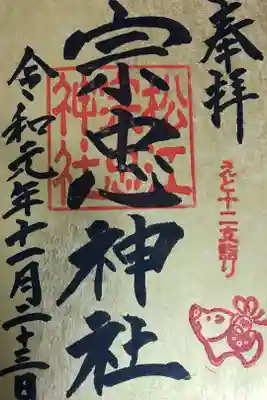 奉拝
えと十二支詣り
宗忠神社
松江
宗忠
神社
令和元年十一月二十三日